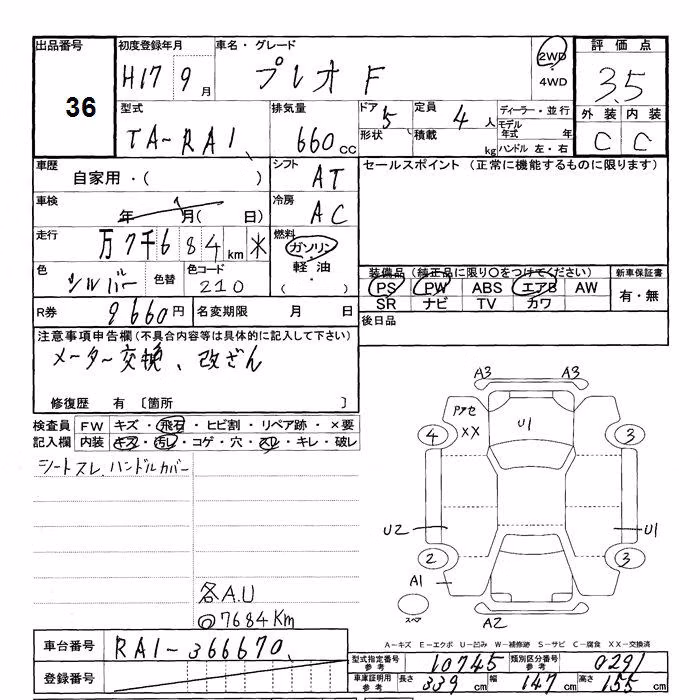 出品番号
36
初度登録年月
H17 9月
車名・グレード
プレオ F
2WD
4WD
評価点
3.5
型式
TA-RA1
排気量
660cc
ドア 5
形状
定員 4人
積載 kg
ディーラー・並行
モデル年式 年
ハンドル 左・右
外装 内装
C C
車歴
自家用・( )
シフト
AT
セールスポイント (正常に機能するものに限ります)
車検
年 月( 日)
冷房
AC
走行
万7千684km ※
燃料
ガソリン・
軽油・
( )
色
シルバー
色替
色コード
210
装備品 (純正品に限り○をつけてください)
PS PW ABS エアB AW
SR ナビ TV カワ
新車保証書
有・無
R券 9660円
名変期限 月 日
後日品
注意事項申告欄 (不具合内容等は具体的に記入して下さい)
メーター交換、改ざん
修復歴 有 〔箇所 〕
検査員記入欄
FW キズ・飛石・ヒビ割・リペア跡・×要
内装 キズ・汚レ・コゲ・穴・スレ・キレ・破レ
シートスレ、ハンドルカバー
各A.U
@7684Km
A3 A3
アクセ
XX
U1
4 3
U2 U1
2 3
A1
スペア
A2
A-キズ E-エクボ U-凹み W-補修跡 S-サビ C-腐食 XX-交換済
車台番号 RA1-366670
登録番号
型式指定番号 参考 10745
類別区分番号 参考 0291
車庫証明用 参考 長さ 339cm 幅 147cm 高さ 155cm